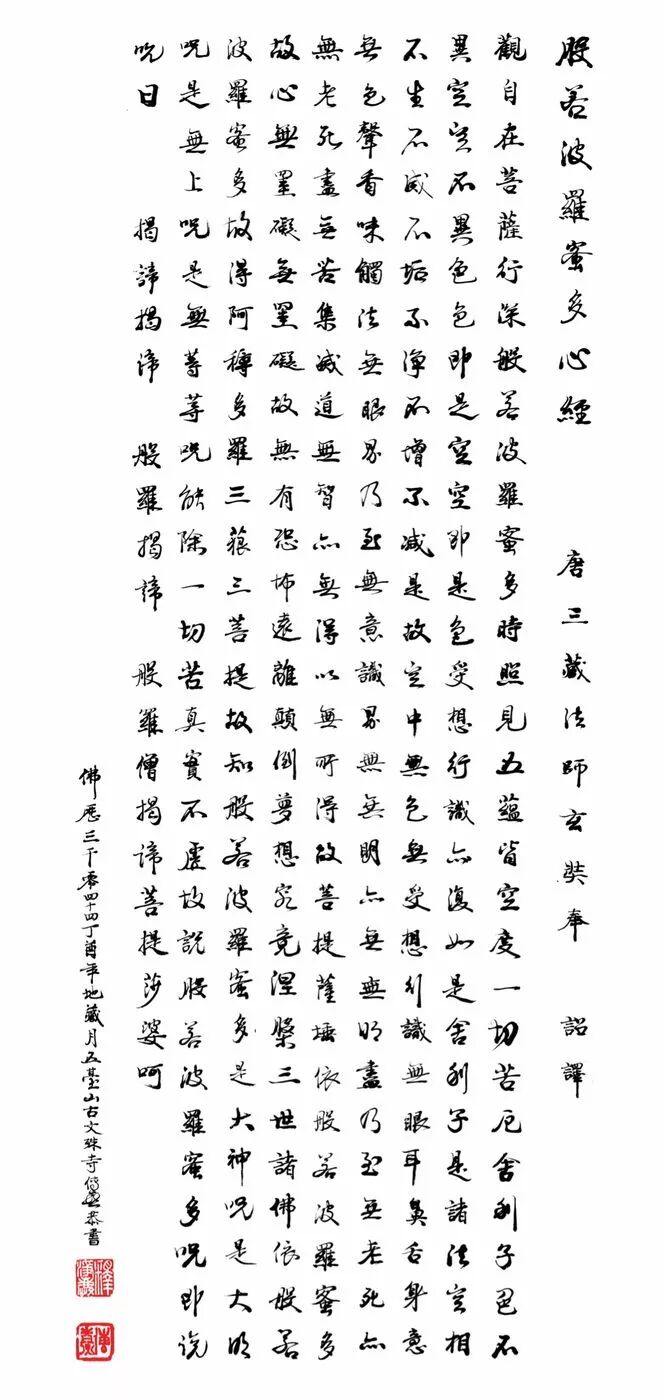 般若波羅蜜多心經 唐三藏法師玄奘奉 詔譯
觀自在菩薩行深般若波羅蜜多時照見五蘊皆空度一切苦厄舍利子色不
異空空不異色色即是空空即是色受想行識亦復如是舍利子是諸法空相
不生不滅不垢不淨不增不減是故空中無色無受想行識無眼耳鼻舌身意
無色聲香味觸法無眼界乃至無意識界無無明亦無無明盡乃至無老死亦
無老死盡無苦集滅道無智亦無得以無所得故菩提薩埵依般若波羅蜜多
故心無罣礙無罣礙故無有恐怖遠離顛倒夢想究竟涅槃三世諸佛依般若
波羅蜜多故得阿耨多羅三藐三菩提故知般若波羅蜜多是大神呪是大明
呪是無上呪是無等等呪能除一切苦真實不虛故說般若波羅蜜多呪即說
呪曰 揭諦揭諦 般羅揭諦 般羅僧揭諦菩提莎婆呵
佛歷三千零四十四丁酉年地藏月五臺山古文殊寺恭書